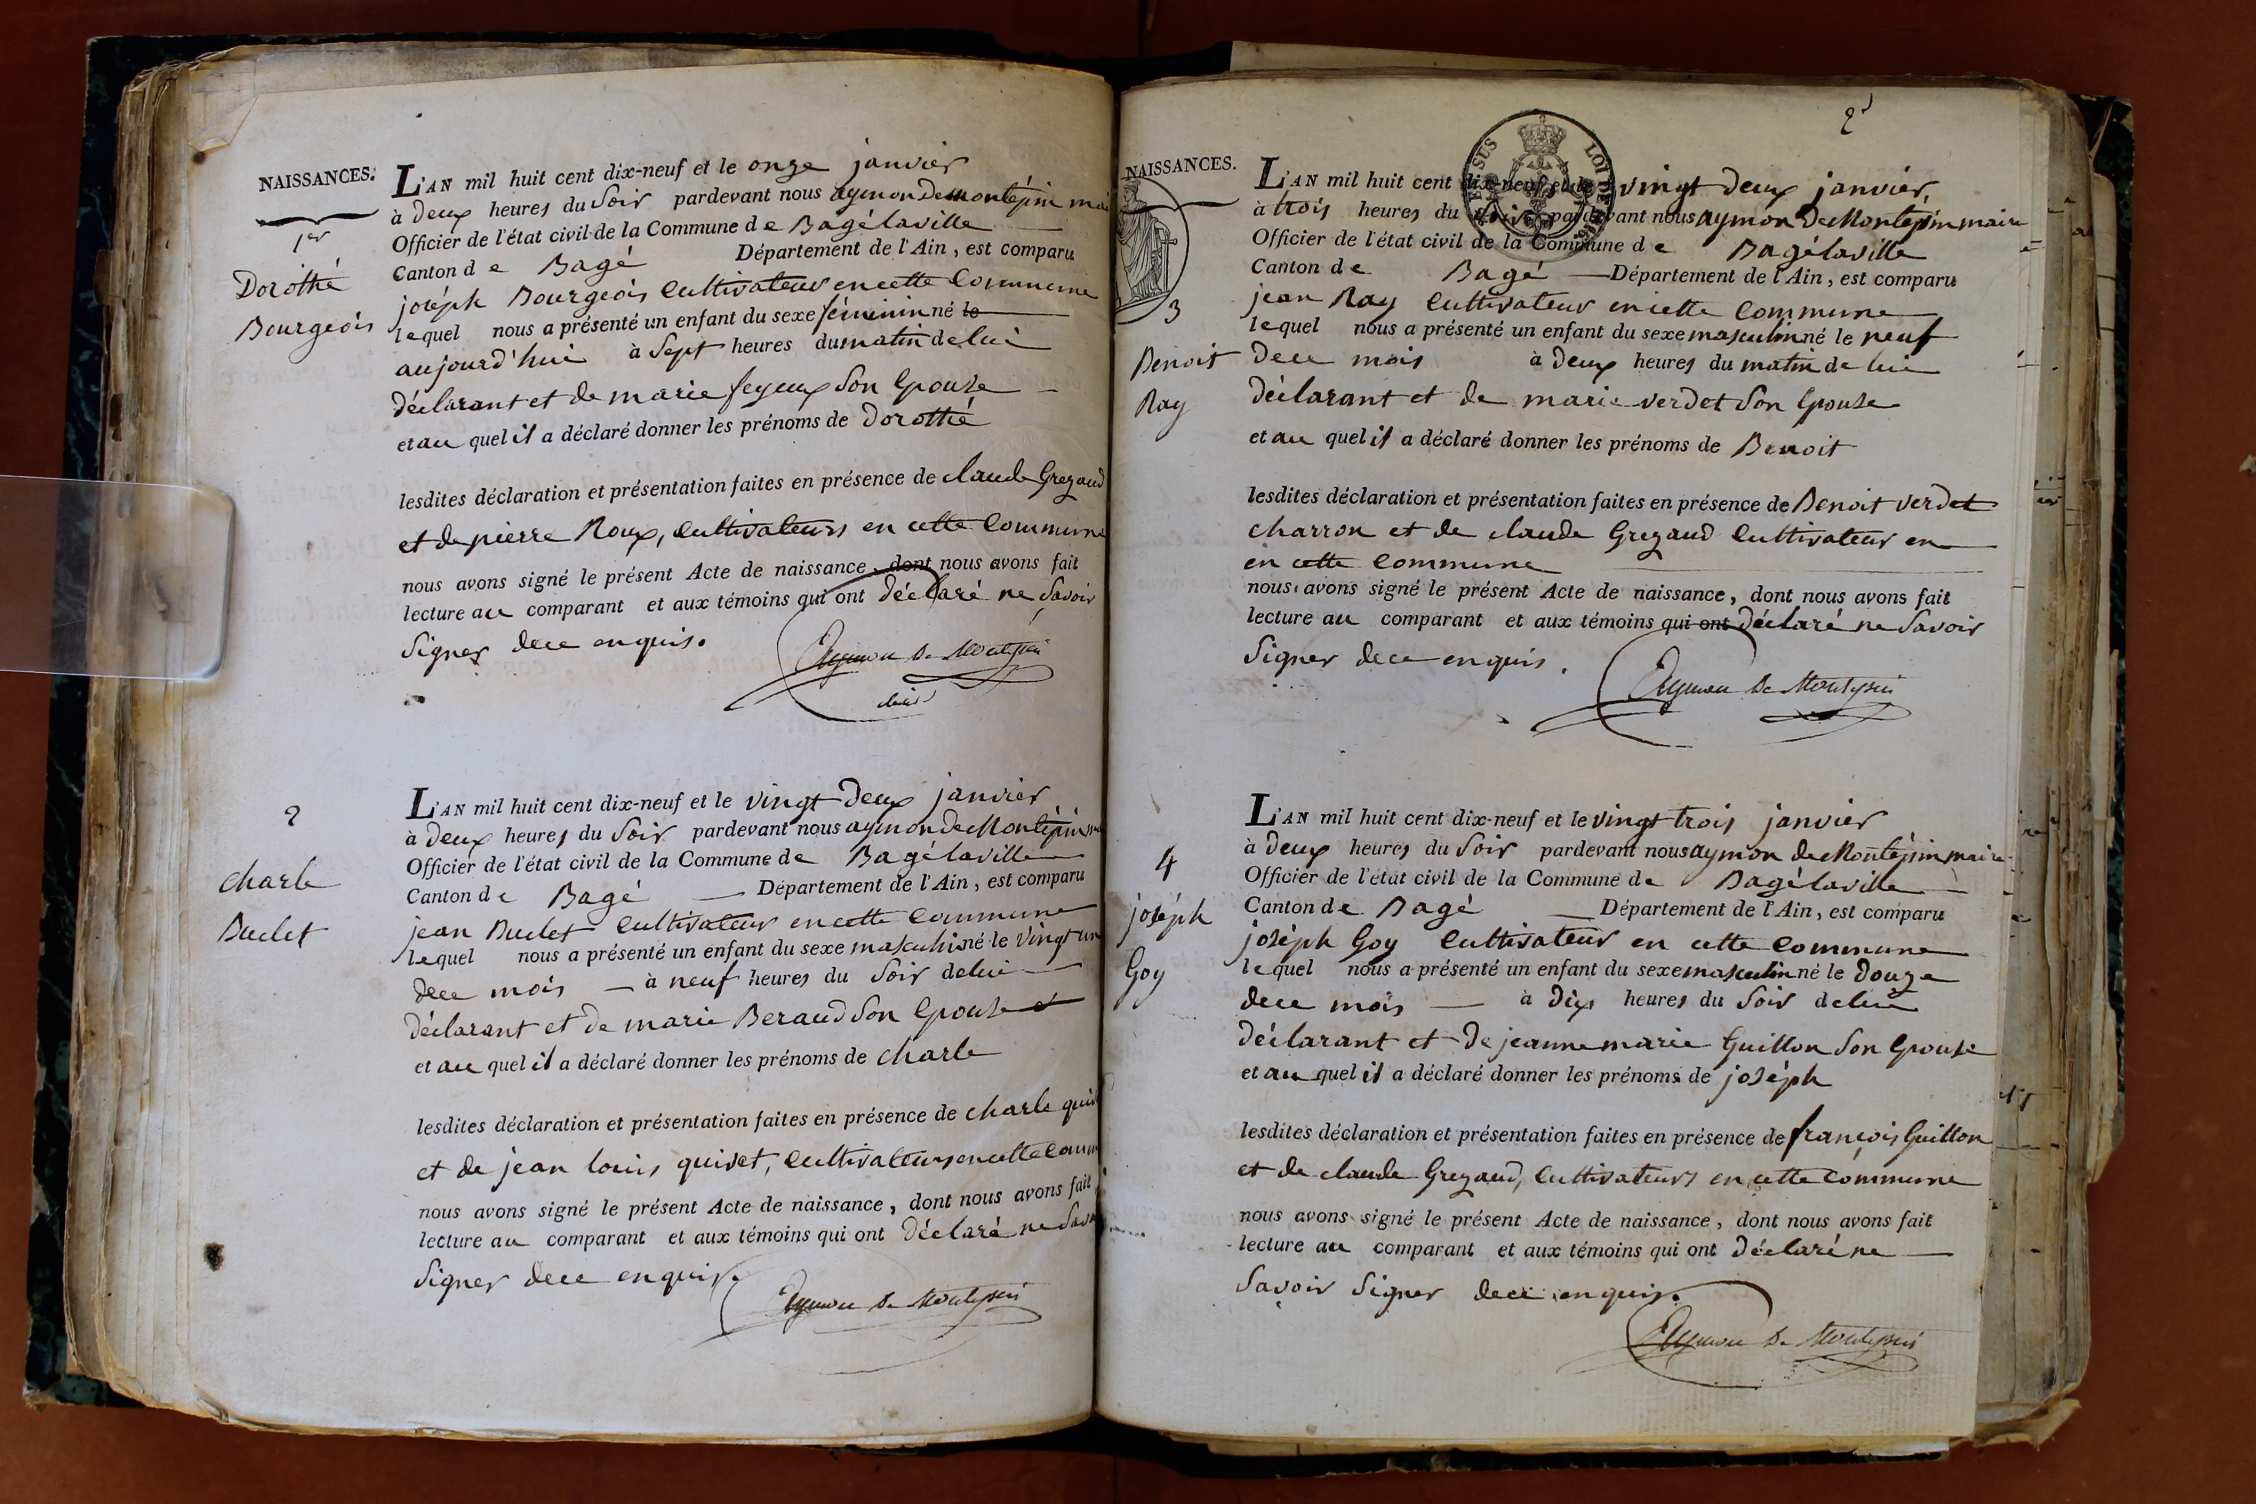 NAISSANCES.
1er
Dorothé
Bourgeois
L'AN mil huit cent dix-neuf et le onze janvier
à deux heures du Soir pardevant nous aymon de montépin
Officier de l'état civil de la Commune de Bagélaville
Canton de Bagé Département de l'Ain, est comparu
joséph Bourgeois Cultivateur en cette Commune
lequel nous a présenté un enfant du sexe féminin né le
aujourd'hui à Sept heures du matin de lui
déclarant et de marie feyeux Son Epouse
et au quel il a déclaré donner les prénoms de Dorothé
lesdites déclaration et présentation faites en présence de claude Gregaud
et de pierre Roux, Cultivateurs en cette Commune
nous avons signé le présent Acte de naissance, dont nous avons fait
lecture au comparant et aux témoins qui ont déclaré ne Savoir
Signer de ce enquis.
Aymon de Montépin
2
charle
Buclet
L'AN mil huit cent dix-neuf et le vingt deux janvier
à deux heures du Soir pardevant nous aymon de Montépin
Officier de l'état civil de la Commune de Bagélaville
Canton de Bagé Département de l'Ain, est comparu
jean Buclet Cultivateur en cette Commune
lequel nous a présenté un enfant du sexe masculin né le vingt un
de ce mois à neuf heures du Soir de lui
déclarant et de marie Beraud Son Epouse et
et au quel il a déclaré donner les prénoms de charle
lesdites déclaration et présentation faites en présence de charle
et de jean louis quivet, Cultivateurs en cette
nous avons signé le présent Acte de naissance, dont nous avons fait
lecture au comparant et aux témoins qui ont déclaré ne
Signer de ce enquis.
Aymon de Montépin
2
NAISSANCES.
3
Benoit
Ray
L'AN mil huit cent dix-neuf et le vingt deux janvier
à trois heures du Soir pardevant nous aymon de Montépin maire
Officier de l'état civil de la Commune de Bagélaville
Canton de Bagé Département de l'Ain, est comparu
jean Ray Cultivateur en cette Commune
lequel nous a présenté un enfant du sexe masculin né le neuf
de ce mois à deux heures du matin de lui
déclarant et de marie verdet Son Epouse
et au quel il a déclaré donner les prénoms de Benoit
lesdites déclaration et présentation faites en présence de Benoit verdet
charron et de claude Gregaud Cultivateur en
en cette Commune
nous avons signé le présent Acte de naissance, dont nous avons fait
lecture au comparant et aux témoins qui ont déclaré ne Savoir
Signer de ce enquis.
Aymon de Montépin
4
joséph
Goy
L'AN mil huit cent dix-neuf et le vingt trois janvier
à deux heures du Soir pardevant nous aymon de Montépin maire
Officier de l'état civil de la Commune de Bagélaville
Canton de Bagé Département de l'Ain, est comparu
joséph Goy Cultivateur en cette Commune
lequel nous a présenté un enfant du sexe masculin né le douze
de ce mois à dix heures du Soir de lui
déclarant et de jeanne marie Guillon Son Epouse
et au quel il a déclaré donner les prénoms de joséph
lesdites déclaration et présentation faites en présence de françois Guillon
et de claude Gregaud, Cultivateurs en cette Commune
nous avons signé le présent Acte de naissance, dont nous avons fait
lecture au comparant et aux témoins qui ont déclaré ne
Savoir Signer de ce enquis.
Aymon de Montépin